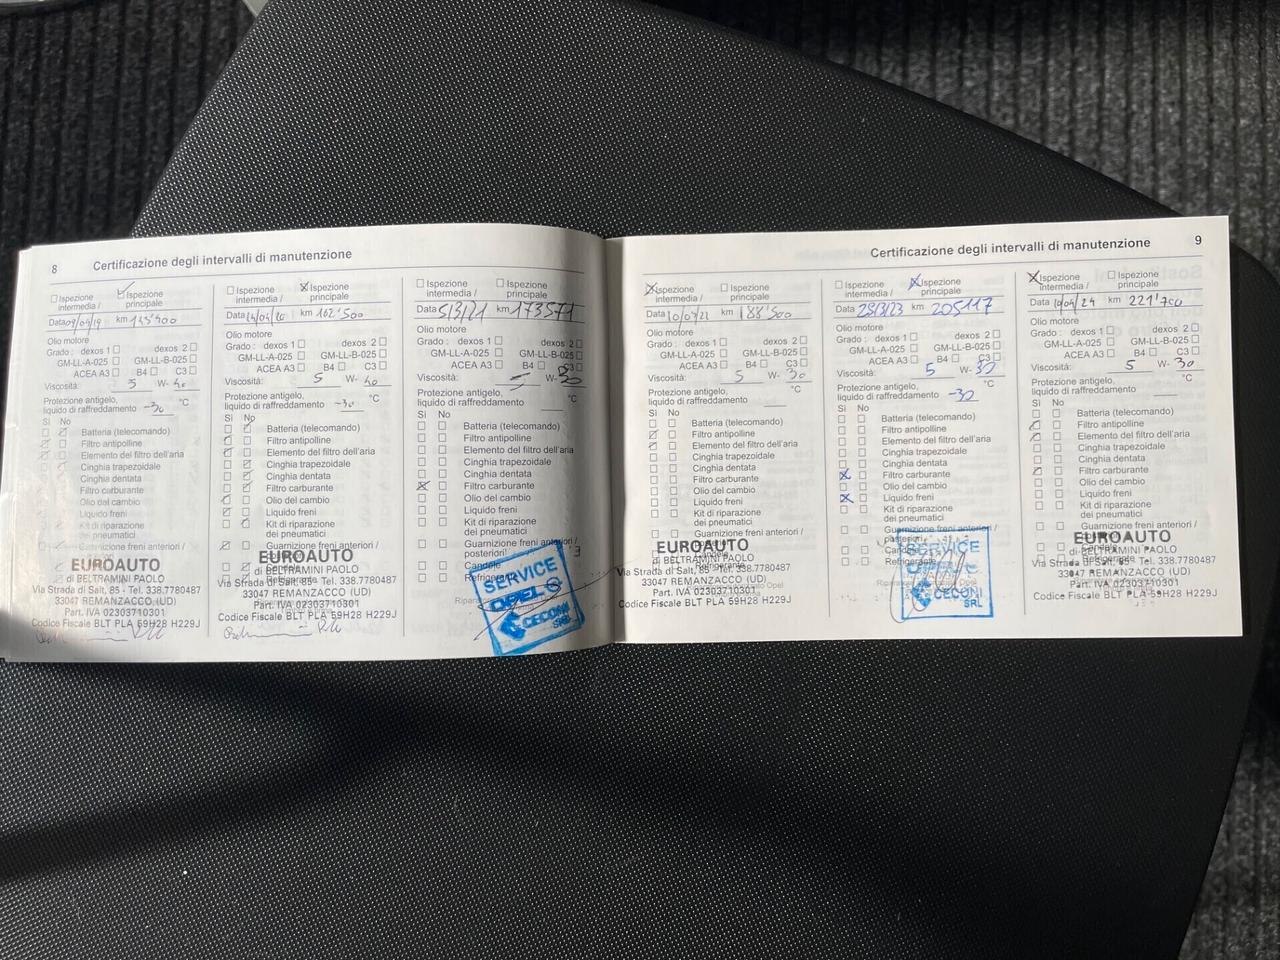 8 Certificazione degli intervalli di manutenzione
Ispezione intermedia /
Ispezione principale
Data 09/04/19 km
Olio motore
Grado: dexos 1 dexos 2
GM-LL-A-025 GM-LL-B-025
ACEA A3 B4 C3
Viscosità: 5 W- 40
Protezione antigelo,
liquido di raffreddamento -30 °C
Sì No
Batteria (telecomando)
Filtro antipolline
Elemento del filtro dell'aria
Cinghia trapezoidale
Cinghia dentata
Filtro carburante
Olio del cambio
Liquido freni
Kit di riparazione
dei pneumatici
Guarnizione freni anteriori /
EUROAUTO
di BELTRAMINI PAOLO
Via Strada di Salt, 85 - Tel. 338.7780487
33047 REMANZACCO (UD)
Part. IVA 02303710301
Codice Fiscale BLT PLA 59H28 H229J
Ispezione intermedia /
Ispezione principale
Data km 162'500
Olio motore
Grado: dexos 1 dexos 2
GM-LL-A-025 GM-LL-B-025
ACEA A3 B4 C3
Viscosità: 5 W- 40
Protezione antigelo,
liquido di raffreddamento -30 °C
Sì No
Batteria (telecomando)
Filtro antipolline
Elemento del filtro dell'aria
Cinghia trapezoidale
Cinghia dentata
Filtro carburante
Olio del cambio
Liquido freni
Kit di riparazione
dei pneumatici
Guarnizione freni anteriori /
EUROAUTO
di BELTRAMINI PAOLO
Via Strada di Salt, 85 - Tel. 338.7780487
33047 REMANZACCO (UD)
Part. IVA 02303710301
Codice Fiscale BLT PLA 59H28 H229J
Ispezione intermedia /
Ispezione principale
Data 5/3/21 km 173571
Olio motore
Grado: dexos 1 dexos 2
GM-LL-A-025 GM-LL-B-025
ACEA A3 B4 C3
Viscosità: 5 W- 30
Protezione antigelo,
liquido di raffreddamento °C
Sì No
Batteria (telecomando)
Filtro antipolline
Elemento del filtro dell'aria
Cinghia trapezoidale
Cinghia dentata
Filtro carburante
Olio del cambio
Liquido freni
Kit di riparazione
dei pneumatici
Guarnizione freni anteriori /
posteriori
Candele
Refrigerante
SERVICE
OPEL
CECONI
SRL
Certificazione degli intervalli di manutenzione 9
Ispezione intermedia /
Ispezione principale
Data km 188'500
Olio motore
Grado: dexos 1 dexos 2
GM-LL-A-025 GM-LL-B-025
ACEA A3 B4 C3
Viscosità: 5 W- 30
Protezione antigelo,
liquido di raffreddamento °C
Sì No
Batteria (telecomando)
Filtro antipolline
Elemento del filtro dell'aria
Cinghia trapezoidale
Cinghia dentata
Filtro carburante
Olio del cambio
Liquido freni
Kit di riparazione
dei pneumatici
Guarnizione freni anteriori /
EUROAUTO
di BELTRAMINI PAOLO
Via Strada di Salt, 85 - Tel. 338.7780487
33047 REMANZACCO (UD)
Part. IVA 02303710301
Codice Fiscale BLT PLA 59H28 H229J
Ispezione intermedia /
Ispezione principale
Data 28/3/23 km 205117
Olio motore
Grado: dexos 1 dexos 2
GM-LL-A-025 GM-LL-B-025
ACEA A3 B4 C3
Viscosità: 5 W- 30
Protezione antigelo,
liquido di raffreddamento -30 °C
Sì No
Batteria (telecomando)
Filtro antipolline
Elemento del filtro dell'aria
Cinghia trapezoidale
Cinghia dentata
Filtro carburante
Olio del cambio
Liquido freni
Kit di riparazione
dei pneumatici
Guarnizione freni anteriori /
posteriori
Candele
Refrigerante
SERVICE
CECONI
SRL
Ispezione intermedia /
Ispezione principale
Data 10/04/24 km 221'700
Olio motore
Grado: dexos 1 dexos 2
GM-LL-A-025 GM-LL-B-025
ACEA A3 B4 C3
Viscosità: 5 W- 30
Protezione antigelo,
liquido di raffreddamento °C
Sì No
Batteria (telecomando)
Filtro antipolline
Elemento del filtro dell'aria
Cinghia trapezoidale
Cinghia dentata
Filtro carburante
Olio del cambio
Liquido freni
Kit di riparazione
dei pneumatici
Guarnizione freni anteriori /
EUROAUTO
di BELTRAMINI PAOLO
Via Strada di Salt, 85 - Tel. 338.7780487
33047 REMANZACCO (UD)
Part. IVA 02303710301
Codice Fiscale BLT PLA 59H28 H229J